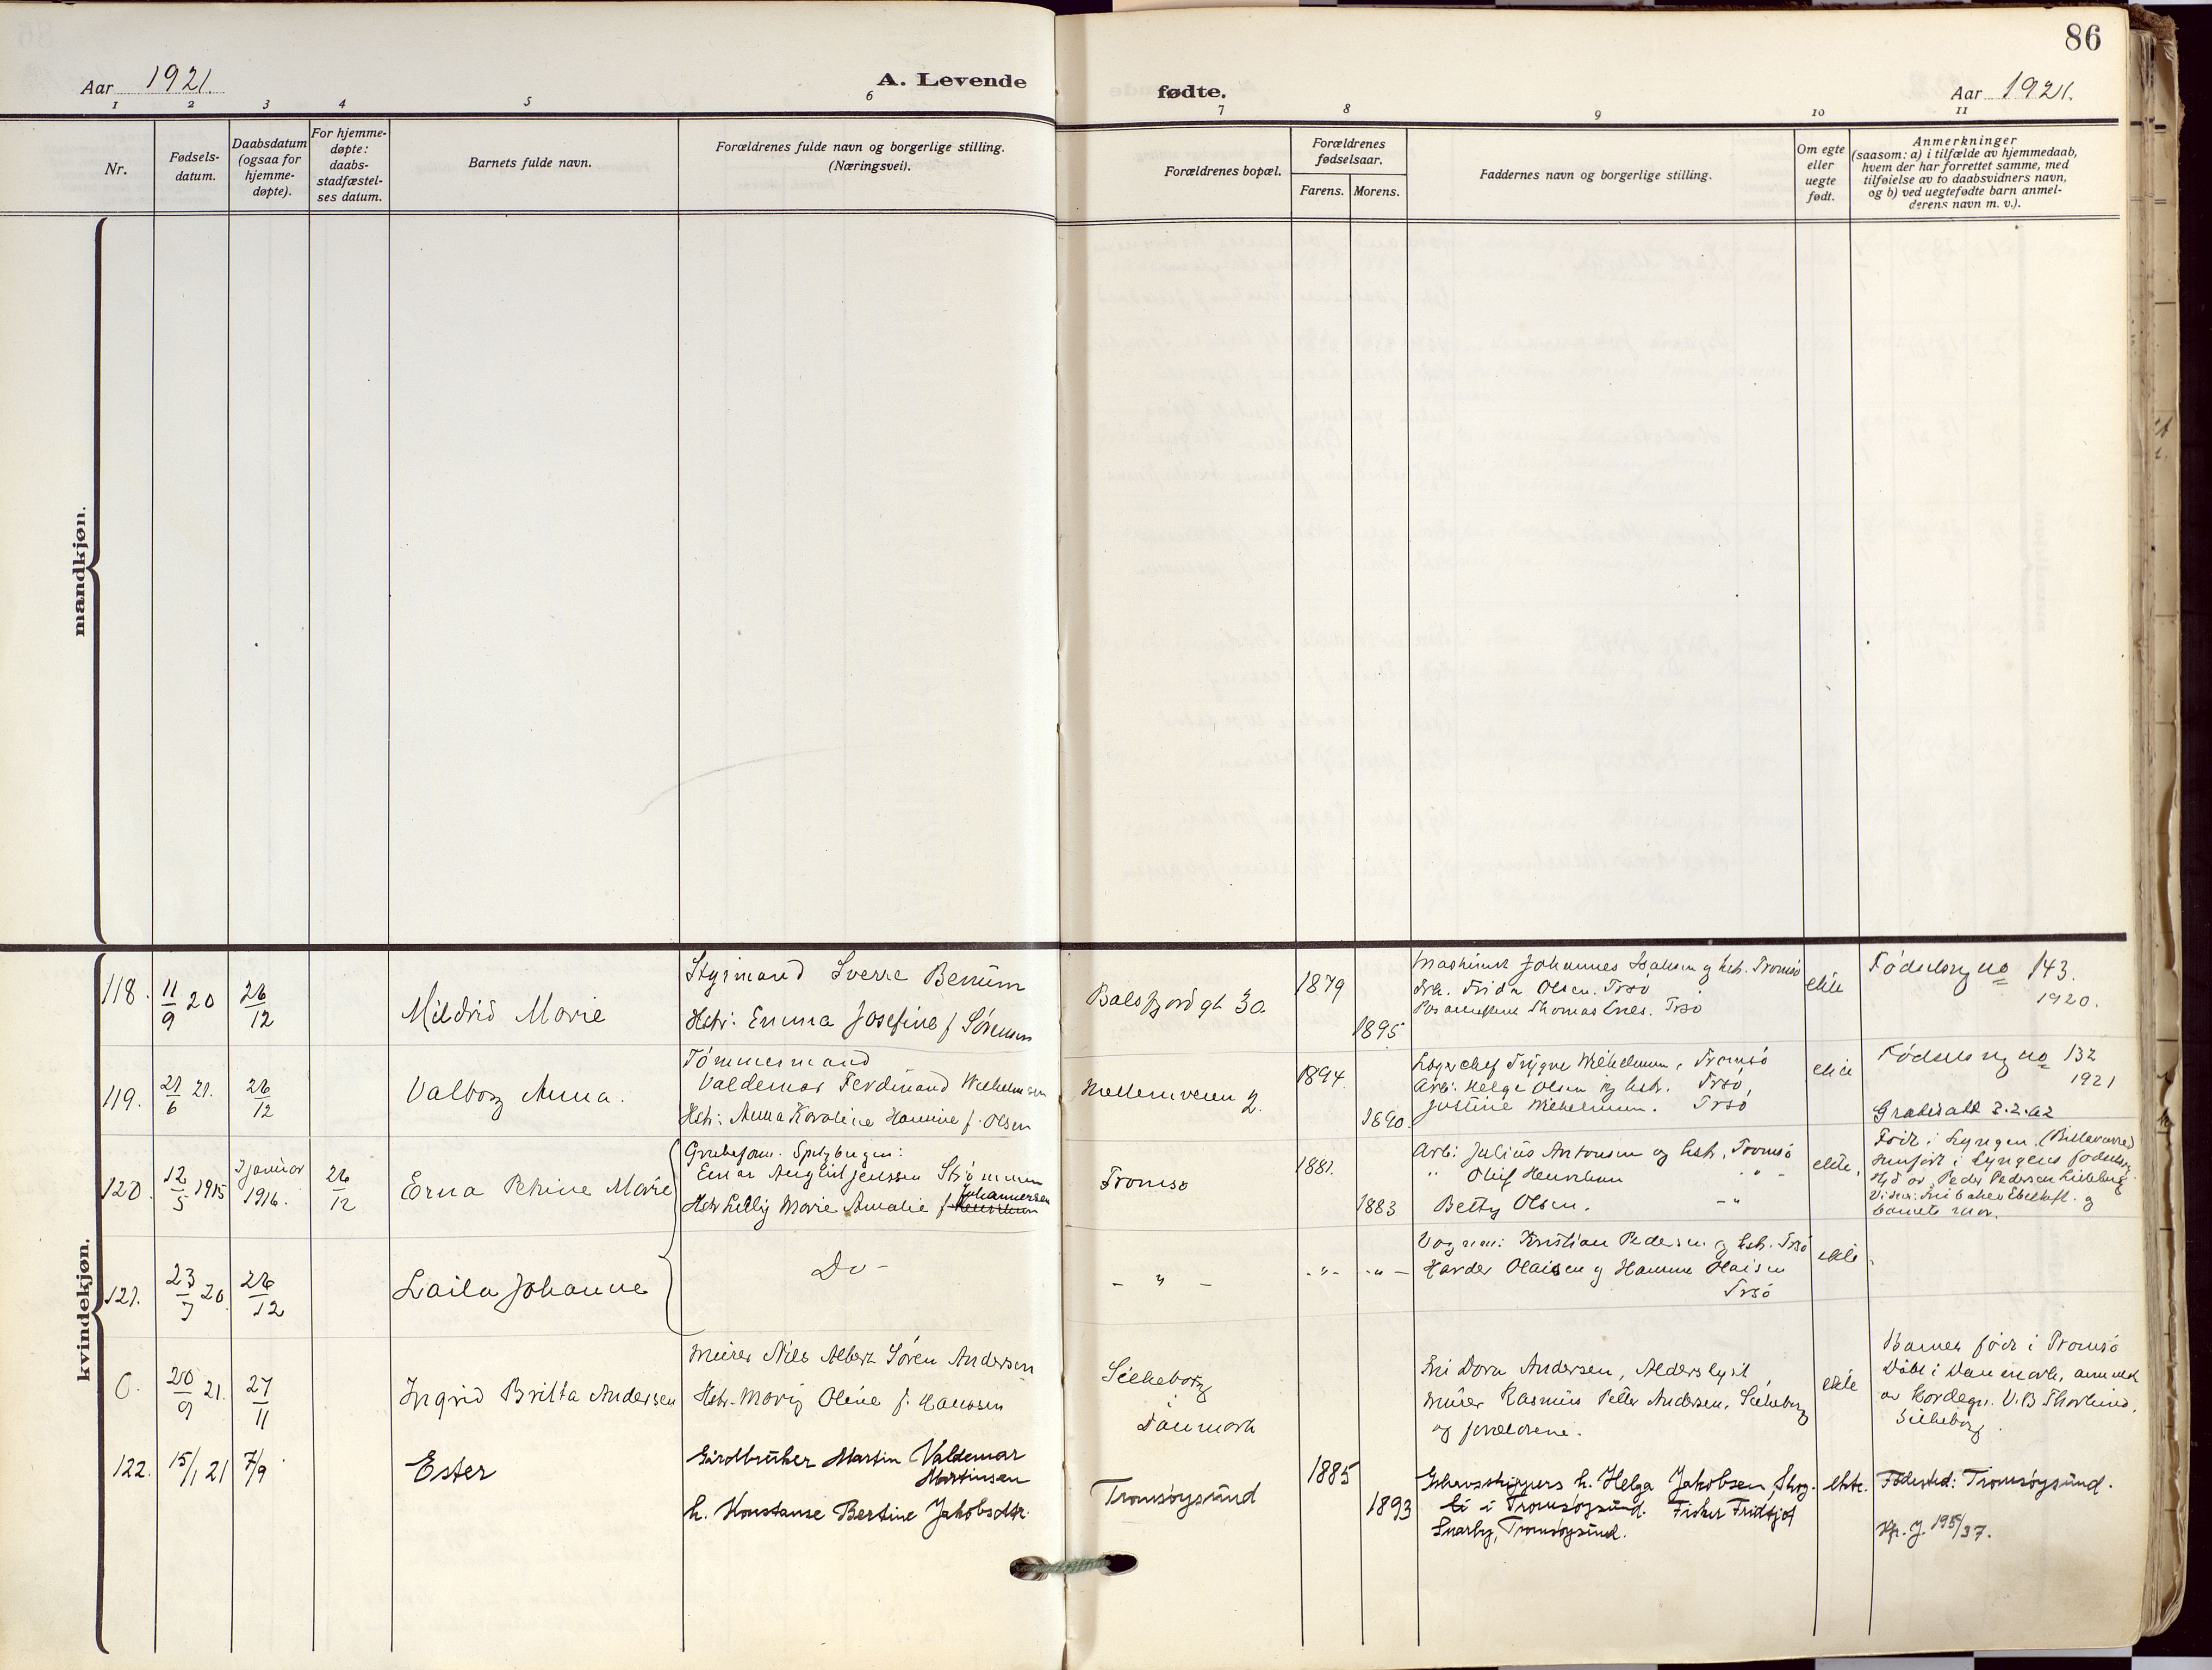 86
Aar 1921. A. Levende fødte. Aar 1921.
1 2 3 4 5 6 7 8 9 10 11
Nr.
Fødsels-
datum.
Daabsdatum
(ogsaa for
hjemme-
døpte).
For hjemme-
døpte:
daabs-
stadfæstel-
ses datum.
Barnets fulde navn.
Forældrenes fulde navn og borgerlige stilling.
(Næringsvei).
Forældrenes bopæl.
Forældrenes
fødselsaar.
Farens. Morens.
Faddernes navn og borgerlige stilling.
Om egte
eller
uegte
født.
Anmerkninger
(saasom: a) i tilfælde av hjemmedaab,
hvem der har forrettet samme, med
tilføielse av to daabsvidners navn,
og b) ved uegtefødte barn anmel-
derens navn m. v.).
mandkjøn.
kvindekjøn.
118. 11/9 20 26/12
Mildrid Marie
Styrmand Sverre Benum
Hstr: Emma Josefine f Sørensen
Balsfjordgt 30.
1879
1895
Johannes og hstr. Tromsø
Frk. Frida Olsen. Trsø
Thomas Trsø
ekte
Fødselsreg no 143.
1920.
119. 21/6 21. 26/12
Valborg Anna.
Tømmermand
Valdemar Ferdinand Wilhelmsen
Hstr: Anna Karoline Hansine f. Olsen
Mellemveien 2.
1894
1890
Trygve Wilhelmsen, Tromsø
Arb: Helge Olsen og hstr. Trsø,
Justine Wilhelmsen. Trsø
ekte
Fødselsreg no 132
1921
2.2.62
120. 12/5 1915 Januar
1916. 26/12
Erna Petrine Marie
Grubeform. Spitzbergen:
Einar August Jenssen Strømmen
Johannessen
Hstr Lilly Marie Amalie f
Tromsø
1881.
1883
Arb: Julius Antonsen og hstr, Tromsø
" Oluf Henriksen " -
Betty Olsen. - "
ekte.
Født i Lyngen.
i Lyngens fødselsreg.
Hjd av Peder Pedersen
og
barnets mor.
121. 23/7 20 26/12
Laila Johanne
Do -
- " -
- " - - " -
Vognm: Kristian Pedersen og hstr. Trsø
Harder Olaisen og Hanna Olaisen
Trsø
ekte.
0. 20/9 21. 27/11
Ingrid Britta Andersen
Murer Nils Albert Søren Andersen
Hstr. Marie Oline f. Hanssen
Silkeborg
Danmark
Fru Dora Andersen, Alderslyst,
Murer Rasmus Peter Andersen, Silkeborg
og forældrene.
ekte
Barnet født i Tromsø
Døbt i Danmark, anmeldt
av Kordegn. V.B Thorlund,
Silkeborg
122. 15/1 21 7/9
Ester
Gårdbruker Martin Valdemar
Martinsen
h. Konstanse Bertine Jakobsdtr.
Tromsøysund
1885
1893
h. Helga Jakobsen,
i Tromsøysund. Fisker Fridtjof
Snarby, Tromsøysund.
ekte.
Fødested: Tromsøysund.
J. 195/37.